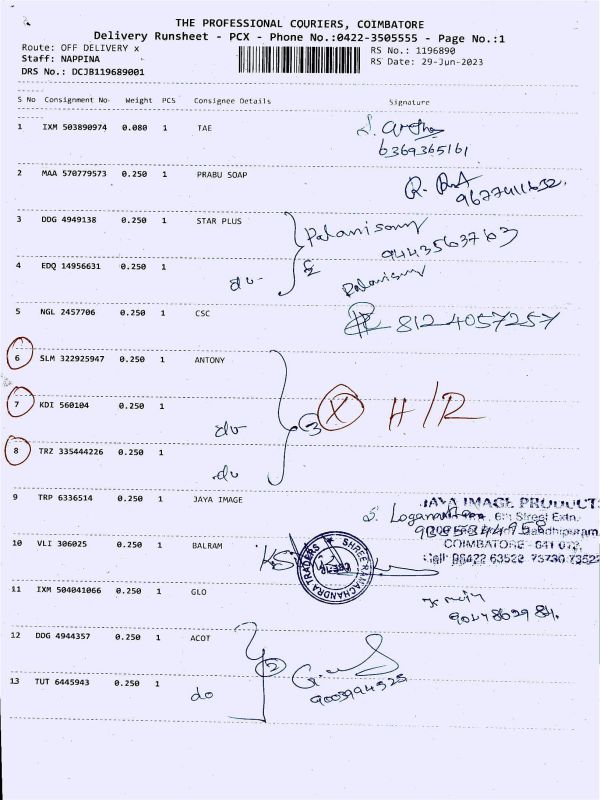 THE PROFESSIONAL COURIERS, COIMBATORE
Delivery Runsheet - PCX - Phone No.:0422-3505555 - Page No.:1
Route: OFF DELIVERY x
RS No.: 1196890
Staff: NAPPINA
RS Date: 29-Jun-2023
DRS No.: DCJB119689001
S No Consignment No Weight PCS Consignee Details Signature
1 IXM 503890974 0.080 1 TAE
6369365161
2 MAA 570779573 0.250 1 PRABU SOAP
R.
3 DDG 4949138 0.250 1 STAR PLUS Palanisamy
9443563763
4 EDQ 14956631 0.250 1
do Palanisamy
5 NGL 2457706 0.250 1 CSC 8124057257
6 SLM 322925947 0.250 1 ANTONY
7 KDI 560104 0.250 1
do 3 X H/R
8 TRZ 335444226 0.250 1
do
9 TRP 6336514 0.250 1 JAYA IMAGE
JAYA IMAGE PRODUCTS
S. Loganathan
Street Extn.
Gandhipuram
COIMBATORE - 641 012.
10 VLI 306025 0.250 1 BALRAM
SHREE RAMACHANDRA TRADERS
11 IXM 504041066 0.250 1 GLO
12 DDG 4944357 0.250 1 ACOT
2
13 TUT 6445943 0.250 1
do
9003994525